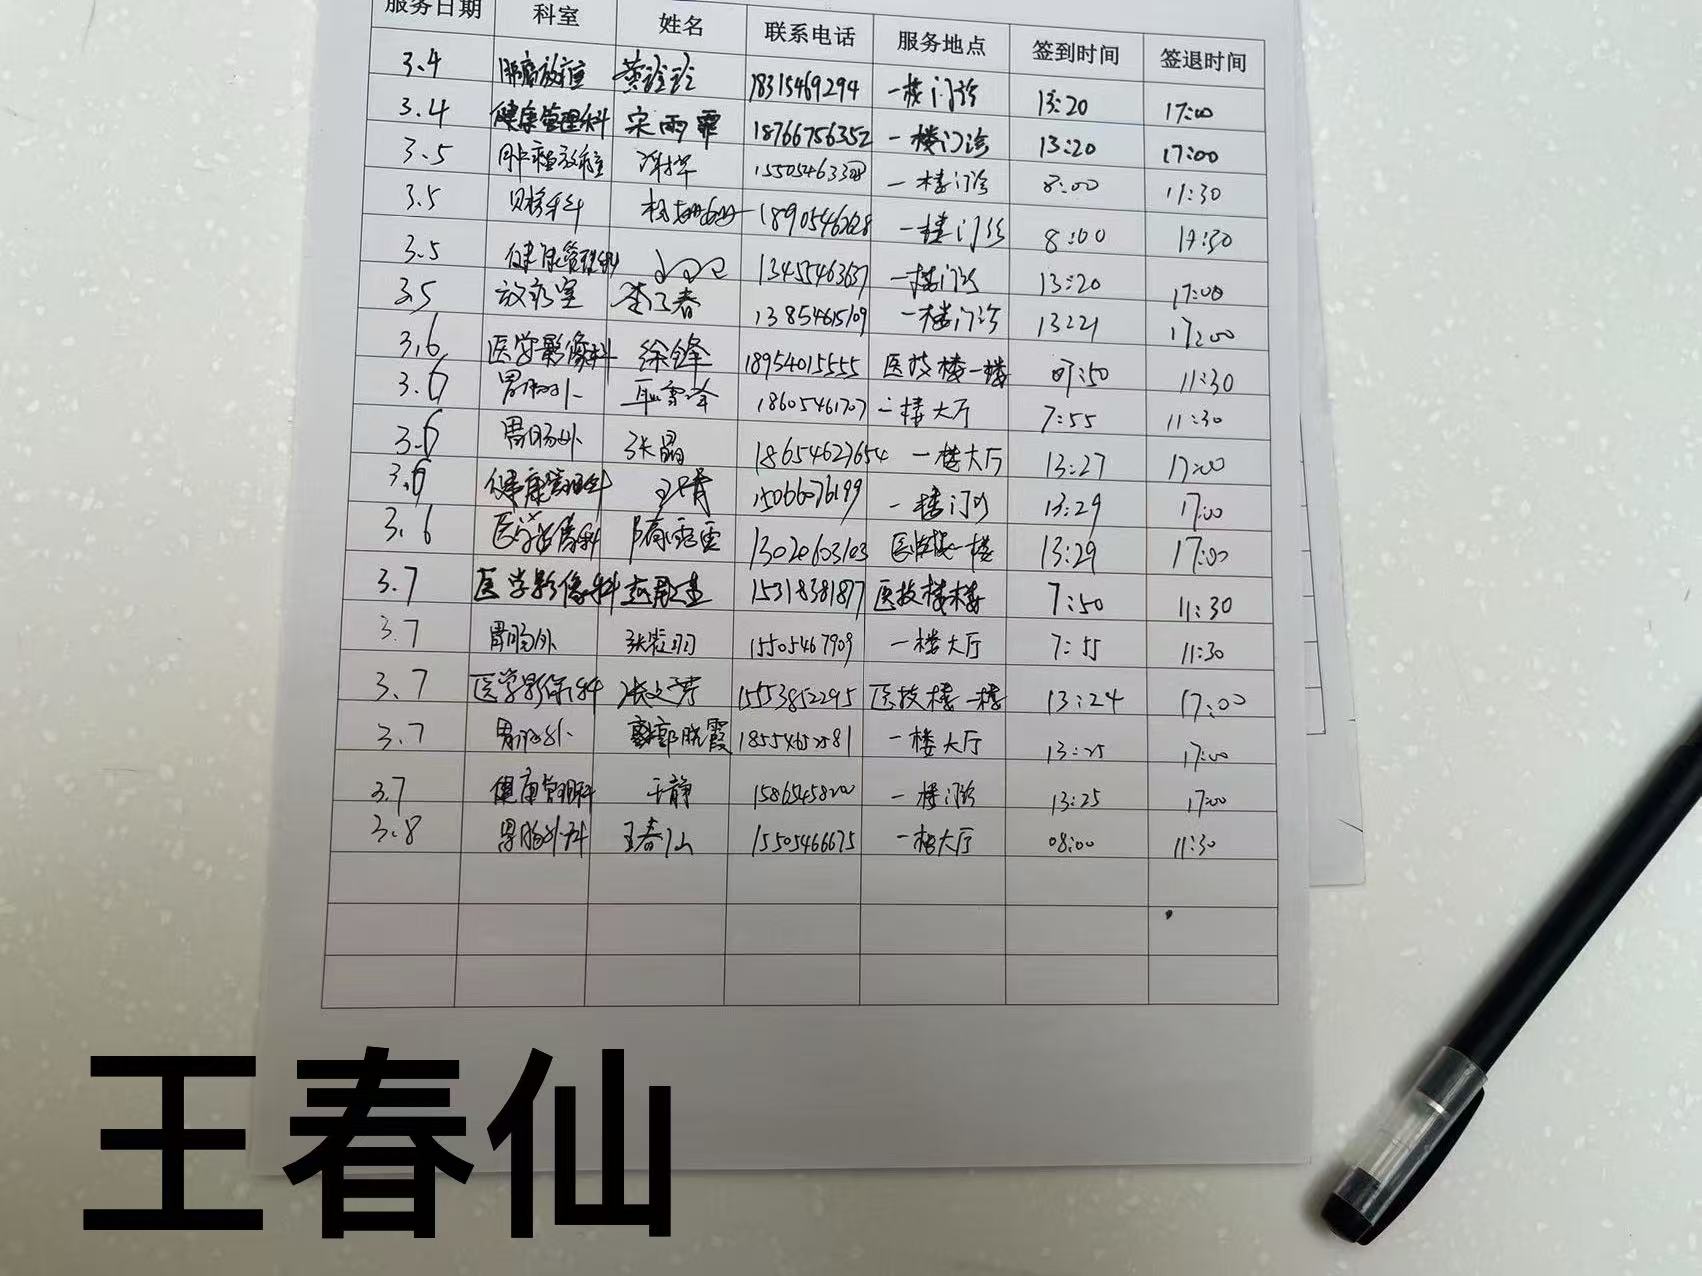 服务日期 科室 姓名 联系电话 服务地点 签到时间 签退时间
3.4 肿瘤放疗 黄玲玲 18315469294 一楼门诊 13:20 17:00
3.4 健康管理科 宋雨霏 18766756352 一楼门诊 13:20 17:00
3.5 肿瘤放疗 15505463308 一楼门诊 8:00 11:30
3.5 财务科 一楼门诊 8:00
3.5 健康管理科 13455463637 一楼门诊 13:20 17:00
3.5 放疗室 春 13854615109 一楼门诊 13:21 17:00
3.6 医学影像科 徐锋 18954015555 医技楼一楼 07:50 11:30
3.6 胃肠外 18605461707 一楼大厅 7:55 11:30
3.6 胃肠外 张晶 18654627654 一楼大厅 13:27 17:00
3.6 健康管理科 15066076199 一楼门诊 13:29 17:00
3.6 医学影像科 13020603103 医技楼一楼 13:29 17:00
3.7 医学影像科 15318381877 医技楼一楼 7:50 11:30
3.7 胃肠外 15505467909 一楼大厅 7:55 11:30
3.7 医学影像科 张文芳 15553852295 医技楼一楼 13:24 17:00
3.7 胃肠外 郭晓霞 18554652581 一楼大厅 13:25 17:00
3.7 健康管理科 于静 一楼门诊 13:25 17:00
3.8 胃肠外科 王春仙 15505466675 一楼大厅 08:00 11:30
王春仙